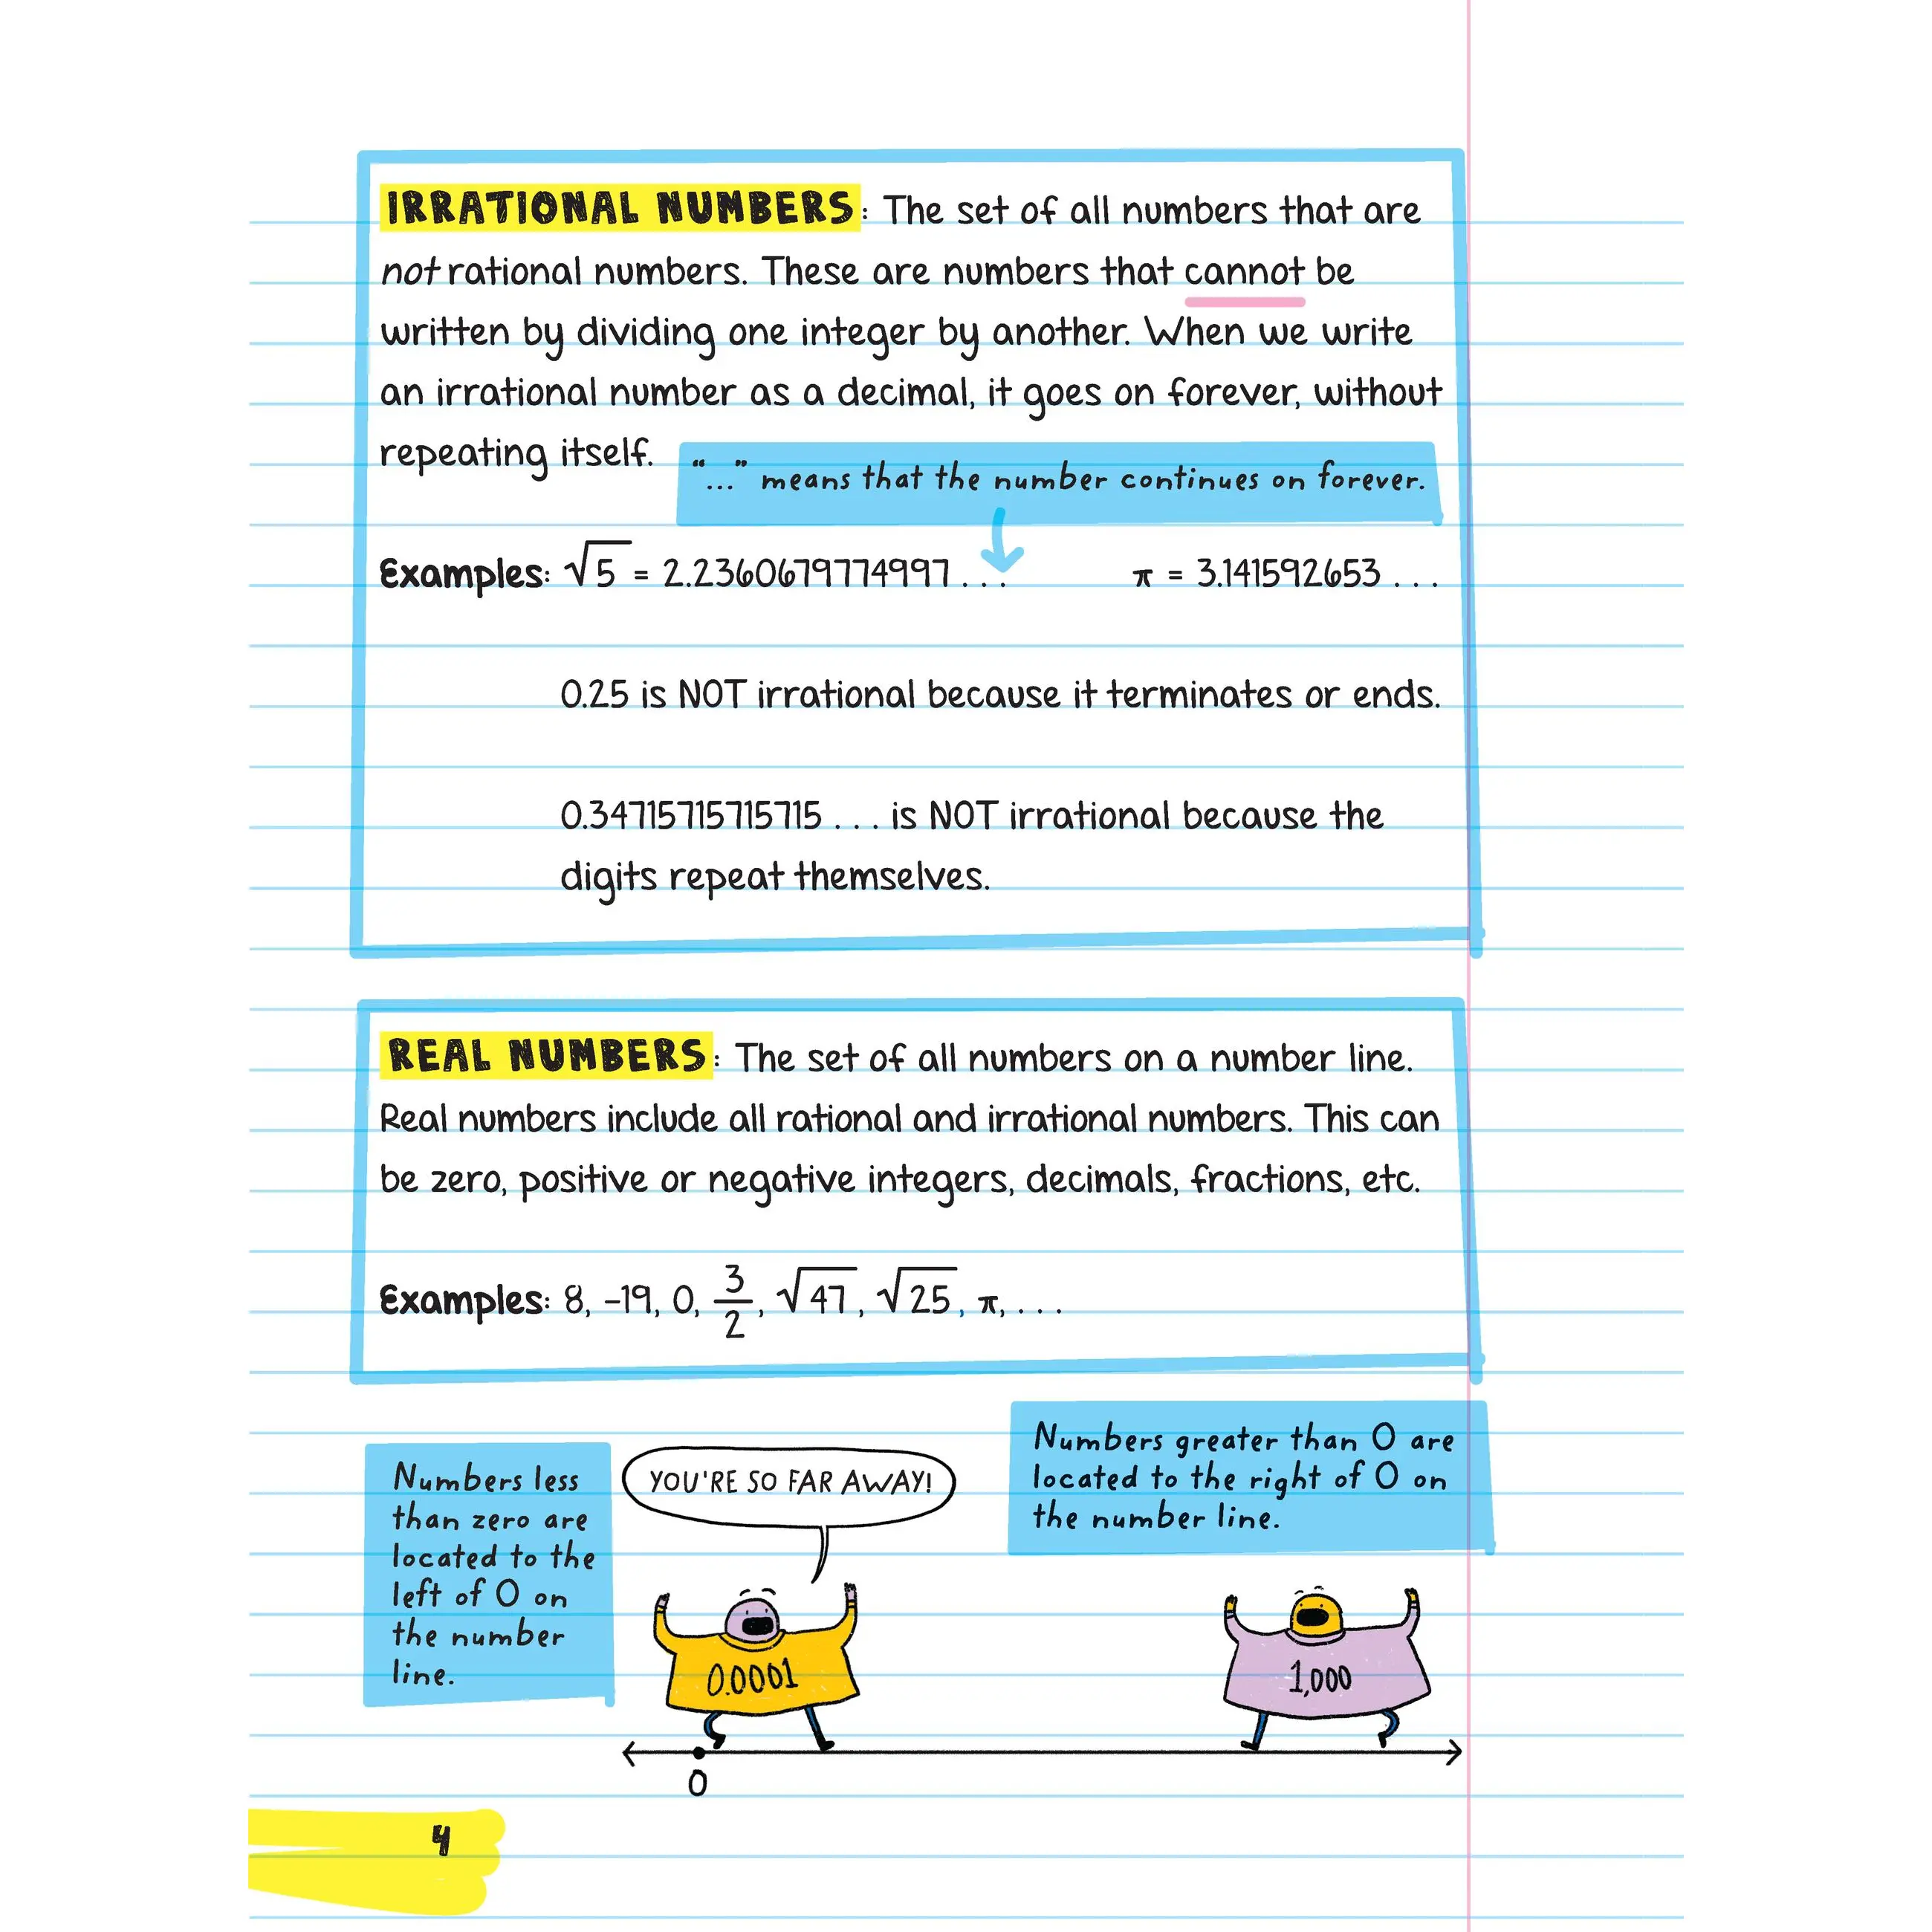 IRRATIONAL NUMBERS: The set of all numbers that are
not rational numbers. These are numbers that cannot be
written by dividing one integer by another. When we write
an irrational number as a decimal, it goes on forever, without
repeating itself.
“...” means that the number continues on forever.
Examples: √5 = 2.2360679774997 . . . π = 3.141592653 . . .
0.25 is NOT irrational because it terminates or ends.
0.34715715715715 . . . is NOT irrational because the
digits repeat themselves.
REAL NUMBERS: The set of all numbers on a number line.
Real numbers include all rational and irrational numbers. This can
be zero, positive or negative integers, decimals, fractions, etc.
Examples: 8, –19, 0, 3/2, √47, √25, π, . . .
Numbers less
than zero are
located to the
left of 0 on
the number
line.
YOU'RE SO FAR AWAY!
Numbers greater than 0 are
located to the right of 0 on
the number line.
0.0001
1,000
0
4